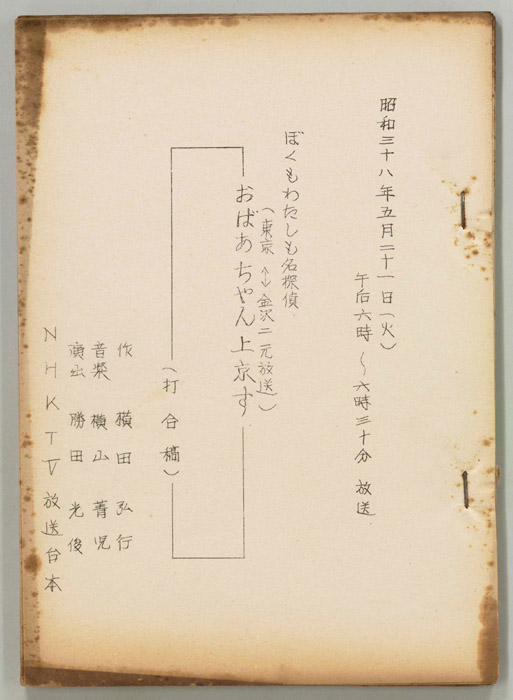 昭和三十八年五月二十一日（火）
午后六時～六時三十分 放送
ぼくもわたしも名探偵
（東京↔金沢二元放送）
おばあちゃん上京す
（打合稿）
作 横田弘行
音楽 横山菁児
演出 勝田光俊
NHKTV放送台本